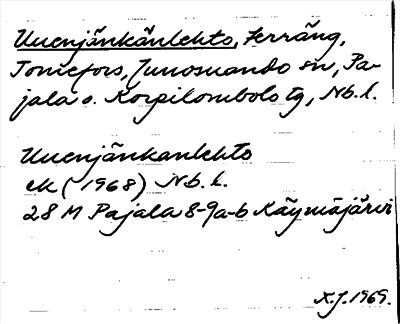 Uuenjänkänlehto, terräng,
Tornefors, Junosuando sn, Pa-
jala o. Korpilombolo tg, Nb.l.
Uuenjänkanlehto
ek (1968) Nb. l.
28 M Pajala 8-9a-b Käymäjärvi
K.J. 1969.